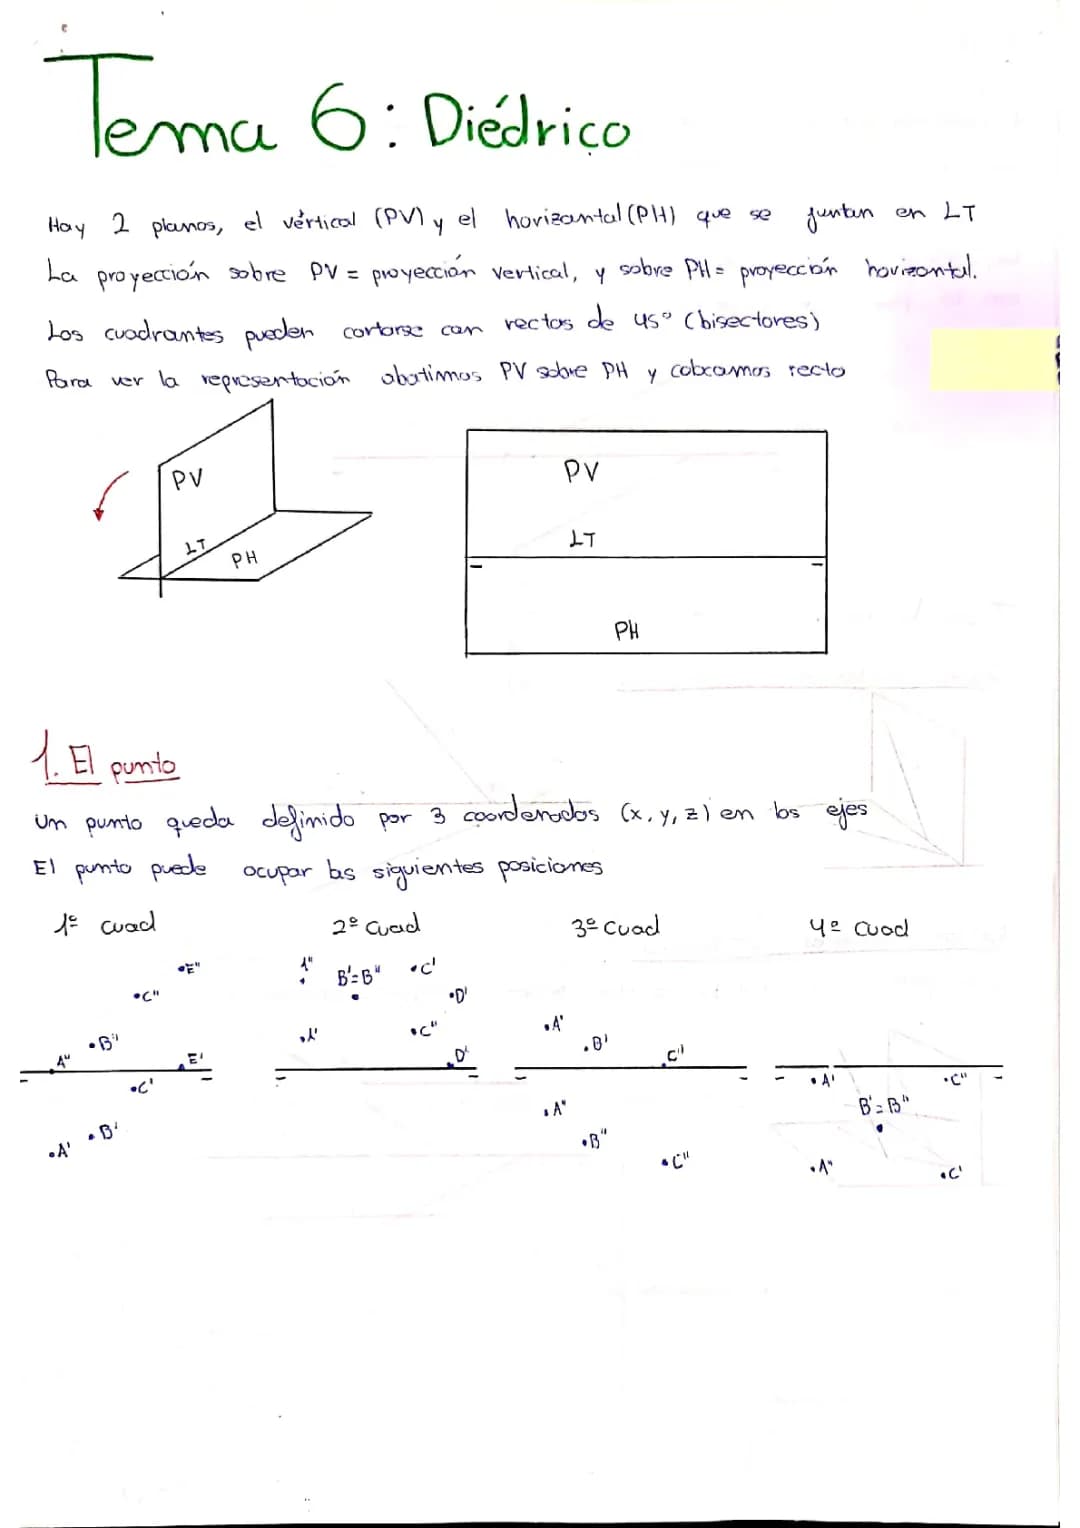 Tema 6: Diédrico
Hay 2 planos, el vértical (PV) y el horizontal (PH) que se juntan en LT
La proyección sobre PV = proyección vertical, y sobre PH = proyección horizontal.
Los cuadrantes pueden cortarse con rectas de 45° (bisectores)
Para ver la representación abatimos PV sobre PH y colocamos recto
PV
LT
PH
PV
LT
PH
1. El punto
Un punto queda definido por 3 coordenadas (x, y, z) en los ejes
El punto puede ocupar las siguientes posiciones
1º cuad
2º cuad
3º cuad
4º cuad
E"
C"
B"
A"
E'
C'
B'
A'
1"
B'=B"
C'
D'
C"
D'
A'
B'
C'
A"
B"
C"
A'
C"
B'=B"
A"
C'